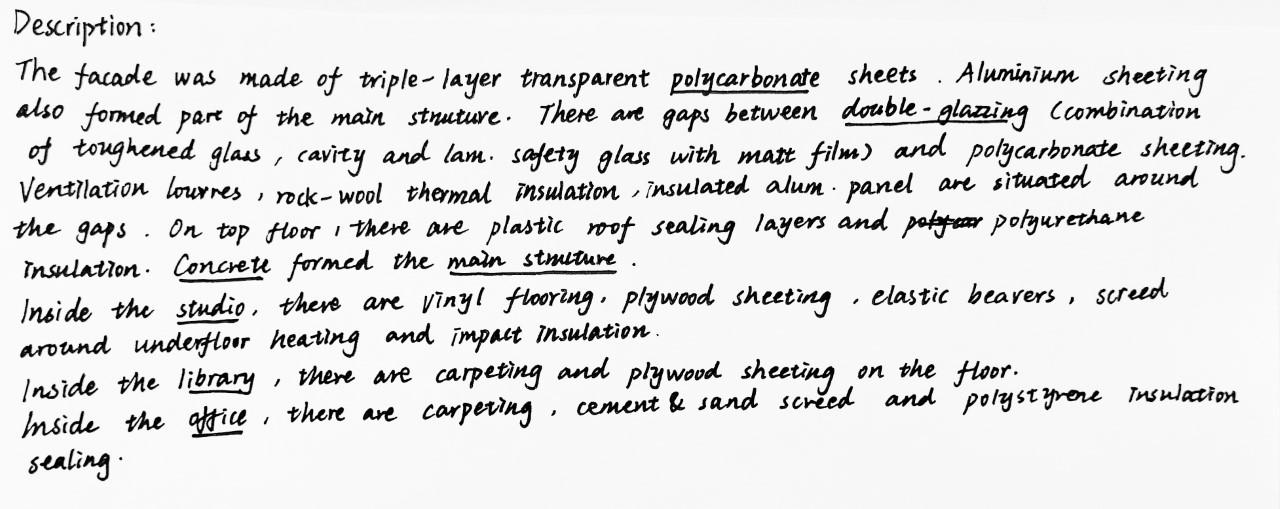 Description :
The facade was made of triple-layer transparent polycarbonate sheets . Aluminium sheeting
also formed part of the main struture. There are gaps between double-glazzing (combination
of toughened glass , cavity and lam. safety glass with matt film) and polycarbonate sheeting.
Ventilation lourres , rock-wool thermal insulation , insulated alum. panel are situated around
the gaps . On top floor , there are plastic roof sealing layers and polycar polyurethane
insulation. Concrete formed the main struture .
Inside the studio, there are vinyl flooring, plywood sheeting , elastic beavers , screed
around underfloor heating and impact insulation.
Inside the library , there are carpeting and plywood sheeting on the floor.
Inside the office , there are carpeting , cement & sand screed and polystyrene insulation
sealing.